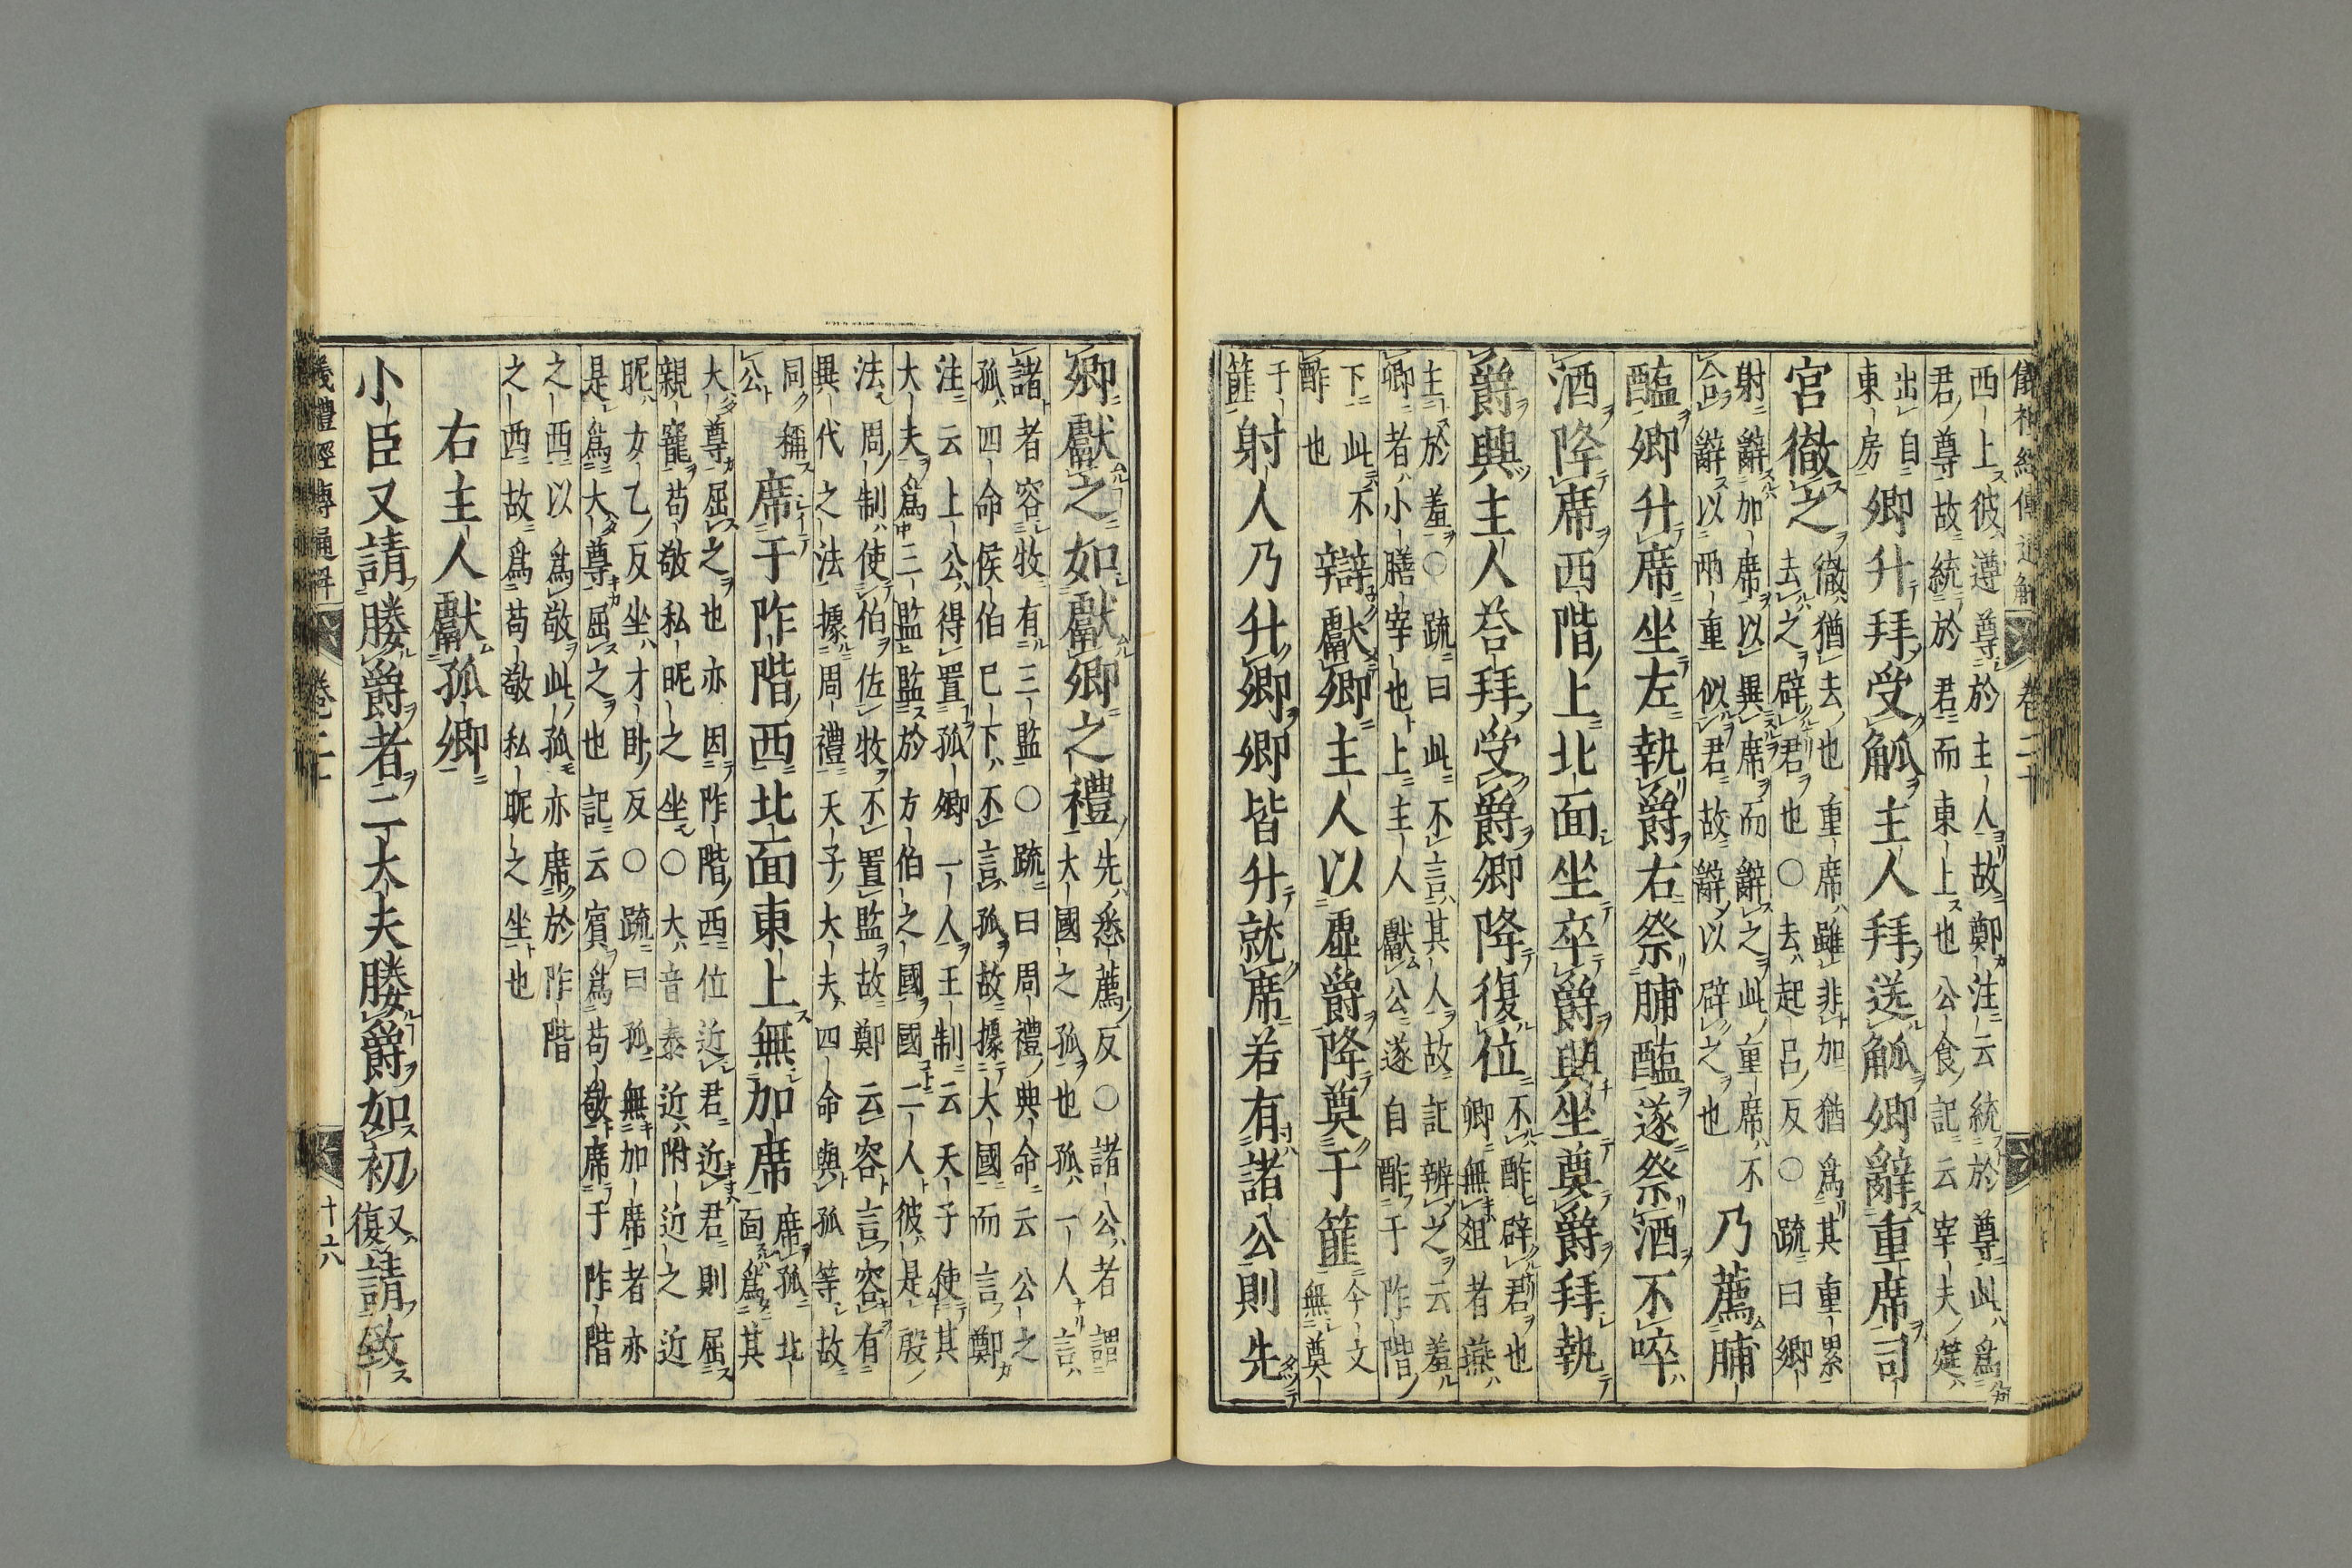 儀礼經傳通解 卷二十
西上彼遵尊於主人故鄭注云統於尊此爲
君尊故統於君而東上也公食記云宰夫筵
出自
東房
卿升拜受觚主人拜送觚卿辭重席司
宮徹之
徹猶去也重席雖非加猶爲其重累
去之辟君也○去起呂反○疏曰卿
射辭加席以異席而辭之此重席不
合辭以兩重似君故辭以辟之也
乃薦脯
醢卿升席坐左執爵右祭脯醢遂祭酒不啐
酒降席西階上北面坐卒爵興坐奠爵拜執
爵興主人荅拜受爵卿降復位
不酢辟君也
卿無俎者燕
主於羞○疏曰此不言其人故記辨之云羞
卿者小膳宰也上主人獻公遂自酢于阼階
下此不
酢也
辯獻卿主人以虛爵降奠于篚
今文
無奠
于
篚
射人乃升卿卿皆升就席若有諸公則先
卿獻之如獻卿之禮
先悉薦反○諸公者謂
大國之孤也孤一人言
諸者容牧有三監○疏曰周禮典命云公之
孤四命侯伯已下不言孤故據大國而言鄭
注云上公得置孤卿一人王制云天子使其
大夫爲三監監於方伯之國國二人彼是殷
法周制使伯佐牧不置監故鄭云容言容有
異代之法據周禮天子大夫四命與孤等故
同稱
公
席于阼階西北面東上無加席
席孤北
面爲其
大尊屈之也亦因阼階西位近君近君則屈
親寵苟敬私昵之坐○大音泰近附近之近
昵女乙反坐才臥反○疏曰孤無加席者亦
是爲大尊屈之也記云賓爲苟敬席于阼階
之西以爲敬此孤亦席於阼階
之西故爲苟敬私昵之坐也
右主人獻孤卿
小臣又請媵爵者二大夫媵爵如初
又
復
請致
儀禮經傳通解 卷二十 十六